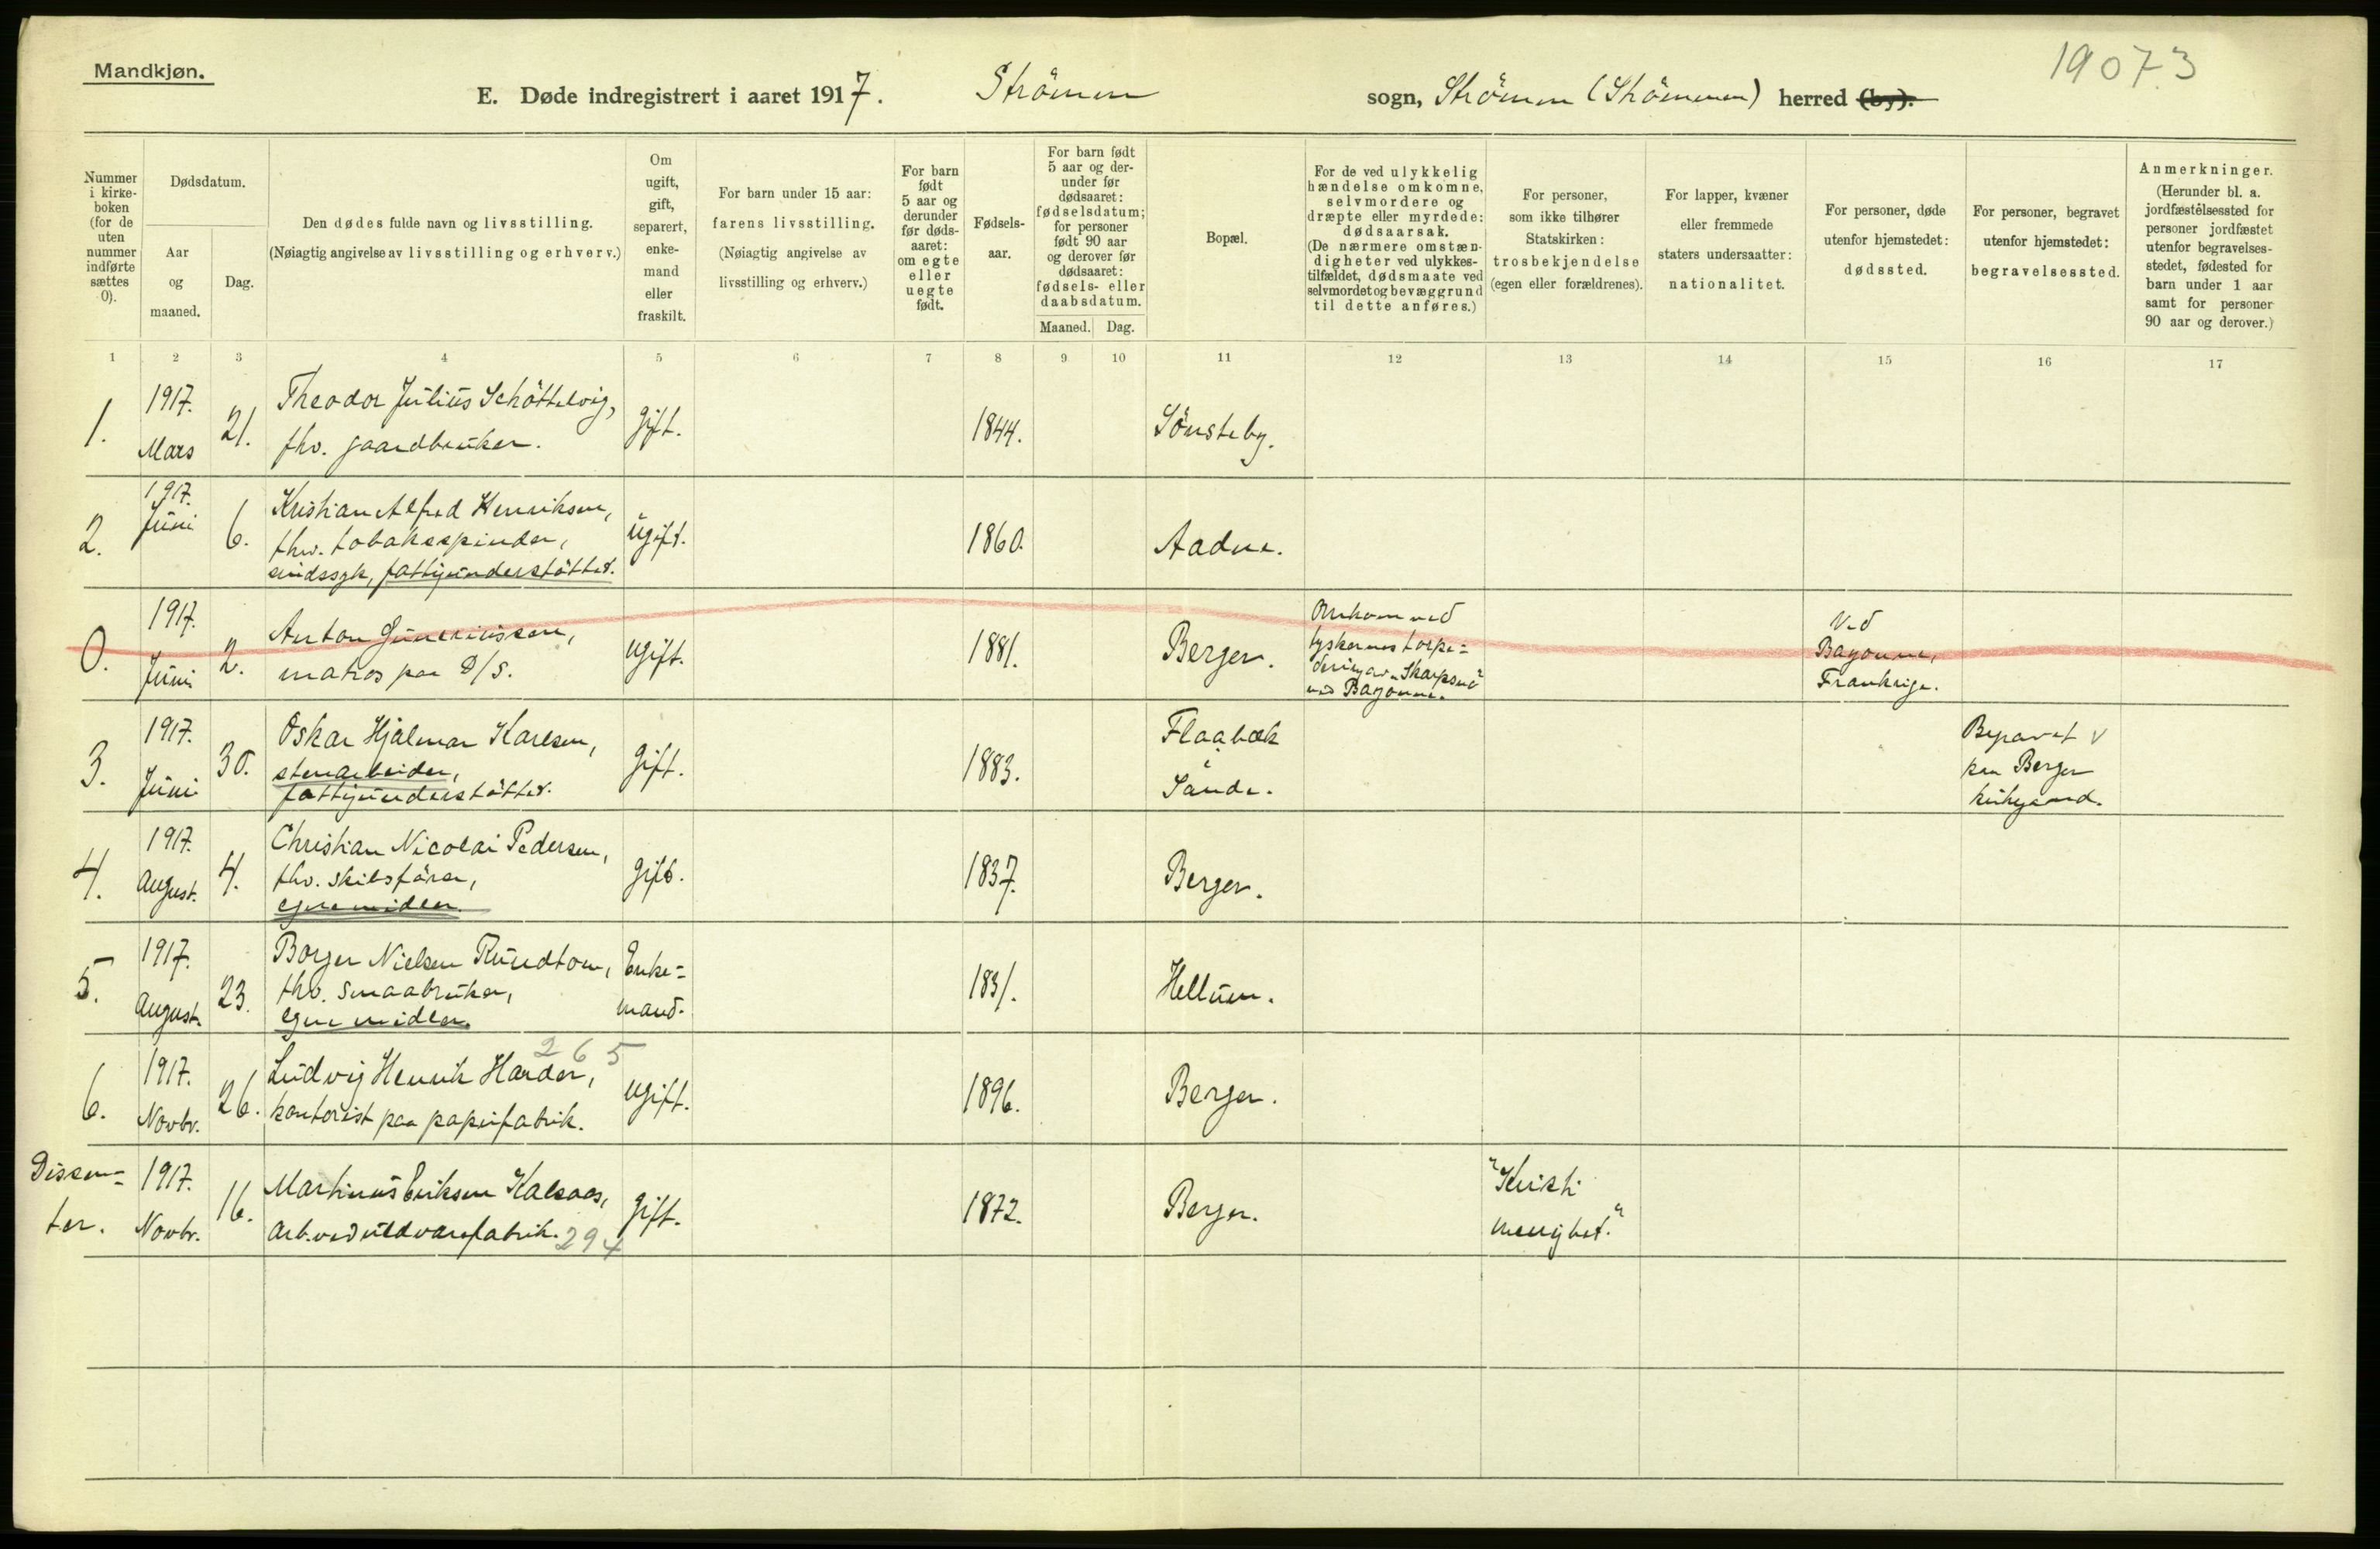 Mandkjøn.
19073
E. Døde indregistrert i aaret 1917. Strömm sogn, Strömm (Strömmen) herred (by).
Nummer i kirke-boken (for de uten nummer indførte sættes 0).
Dødsdatum.
Aar og maaned.
Dag.
Den dødes fulde navn og livsstilling.
(Nøiagtig angivelse av livsstilling og erhverv.)
Om ugift, gift, separert, enke-mand eller fraskilt.
For barn under 15 aar: farens livsstilling.
(Nøiagtig angivelse av livsstilling og erhverv.)
For barn født 5 aar og derunder før døds-aaret: om egte eller uegte født.
Fødsels-aar.
For barn født 5 aar og der-under før dødsaaret: fødselsdatum; for personer født 90 aar og derover før dødsaaret: fødsels- eller daabsdatum.
Maaned. Dag.
Bopæl.
For de ved ulykkelig hændelse omkomne, selvmordere og dræpte eller myrdede: dødsaarsak.
(De nærmere omstæn-digheter ved ulykkes-tilfældet, dødsmaate ved selvmordet og bevæggrund til dette anføres.)
For personer, som ikke tilhører Statskirken: trosbekjendelse (egen eller forældrenes).
For lapper, kvæner eller fremmede staters undersaatter: nationalitet.
For personer, døde utenfor hjemstedet: dødssted.
For personer, begravet utenfor hjemstedet: begravelsessted.
Anmerkninger.
(Herunder bl. a. jordfæstelsessted for personer jordfæstet utenfor begravelses-stedet, fødested for barn under 1 aar samt for personer 90 aar og derover.)
1 2 3 4 5 6 7 8 9 10 11 12 13 14 15 16 17
1. 1917. Mars 21. Theodor Julius Schöttelvig,
fhv. gaardbruker. gift. 1844. Sönsteby.
2. 1917. Juni 6. Kristian Alfred Henriksen,
fhv. tobakspinder,
sindssyk, fattigunderstöttet. ugift. 1860. Aadne.
0. 1917. Juni 2. Anton Guneriussen,
matros paa D/S. ugift. 1881. Berger.
Omkom ved
tyskernes torpe-
dering av "Skarpsno"
ved Bayonne.
Ved
Bayonne,
Frankrige.
3. 1917. Juni 30. Oskar Hjalmar Karlsen,
stenarbeider,
fattigunderstöttet. gift. 1883. Flaabæk
i
Sande.
Begravet v
paa Berger
kirkegaard.
4. 1917. August. 4. Christian Nicolai Pedersen,
fhv. skibsförer,
egne midler. gift. 1837. Berger.
5. 1917. August. 23. Borger Nielsen Rundtom,
fhv. smaabruker,
egne midler. Enke-
mand. 1831. Hellum.
6. 1917. Novbr. 26. Ludvig Henrik Harder, 265
kontorist paa papirfabrik. ugift. 1896. Berger.
Dissen-
ter. 1917. Novbr. 16. Martinus Eriksen Kalsaas,
Arb. ved uldvarefabrik. 294 gift. 1872. Berger.
"Kristi
menighet."